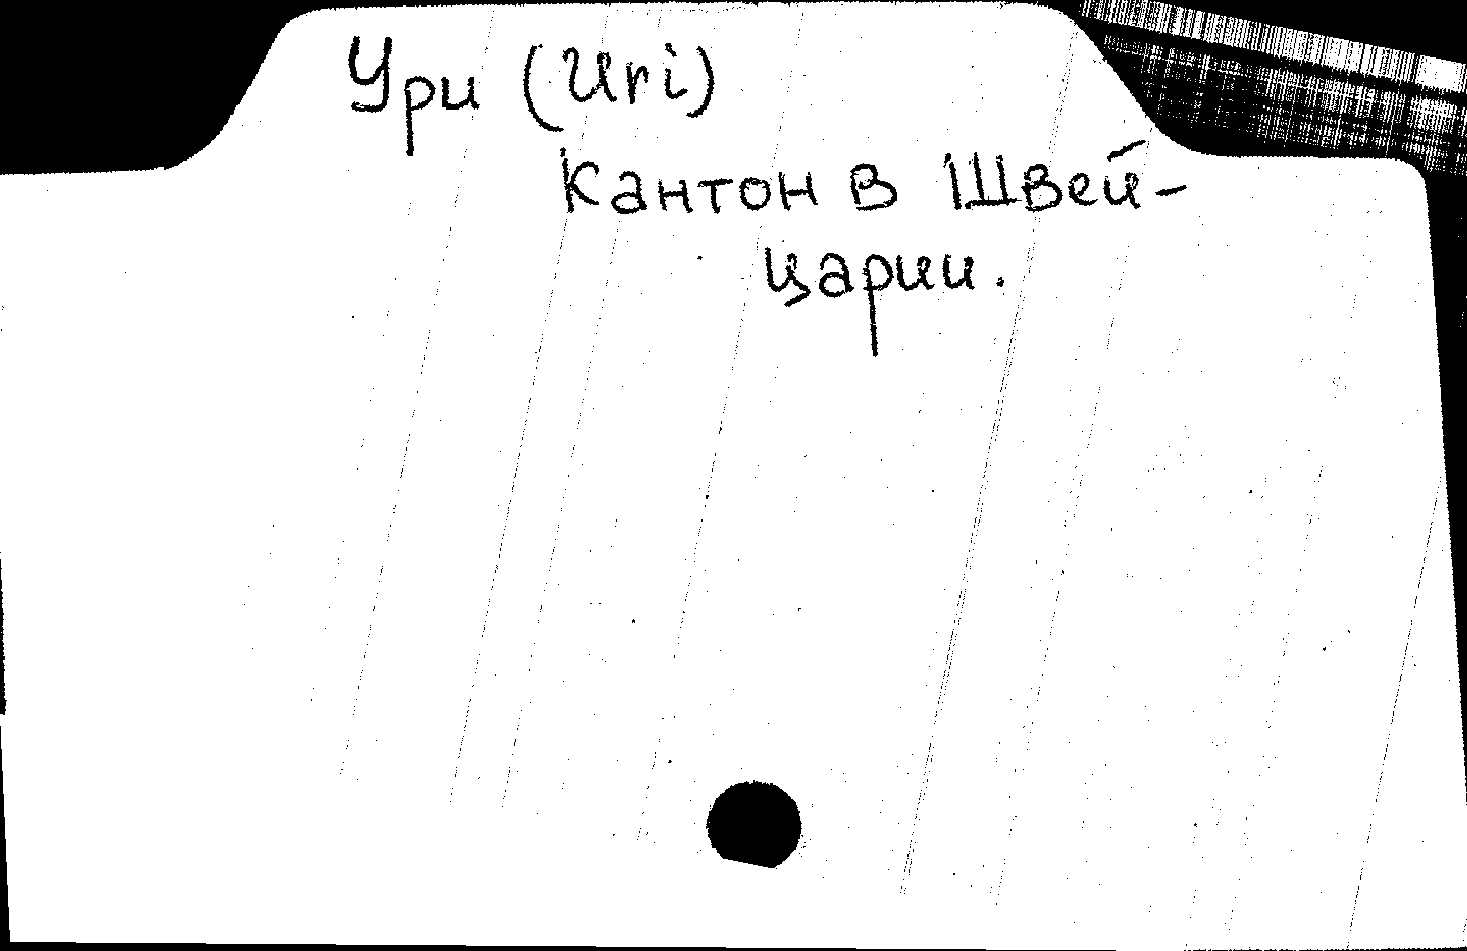 Ури (Uri)
Кантон в Швей-
царии.